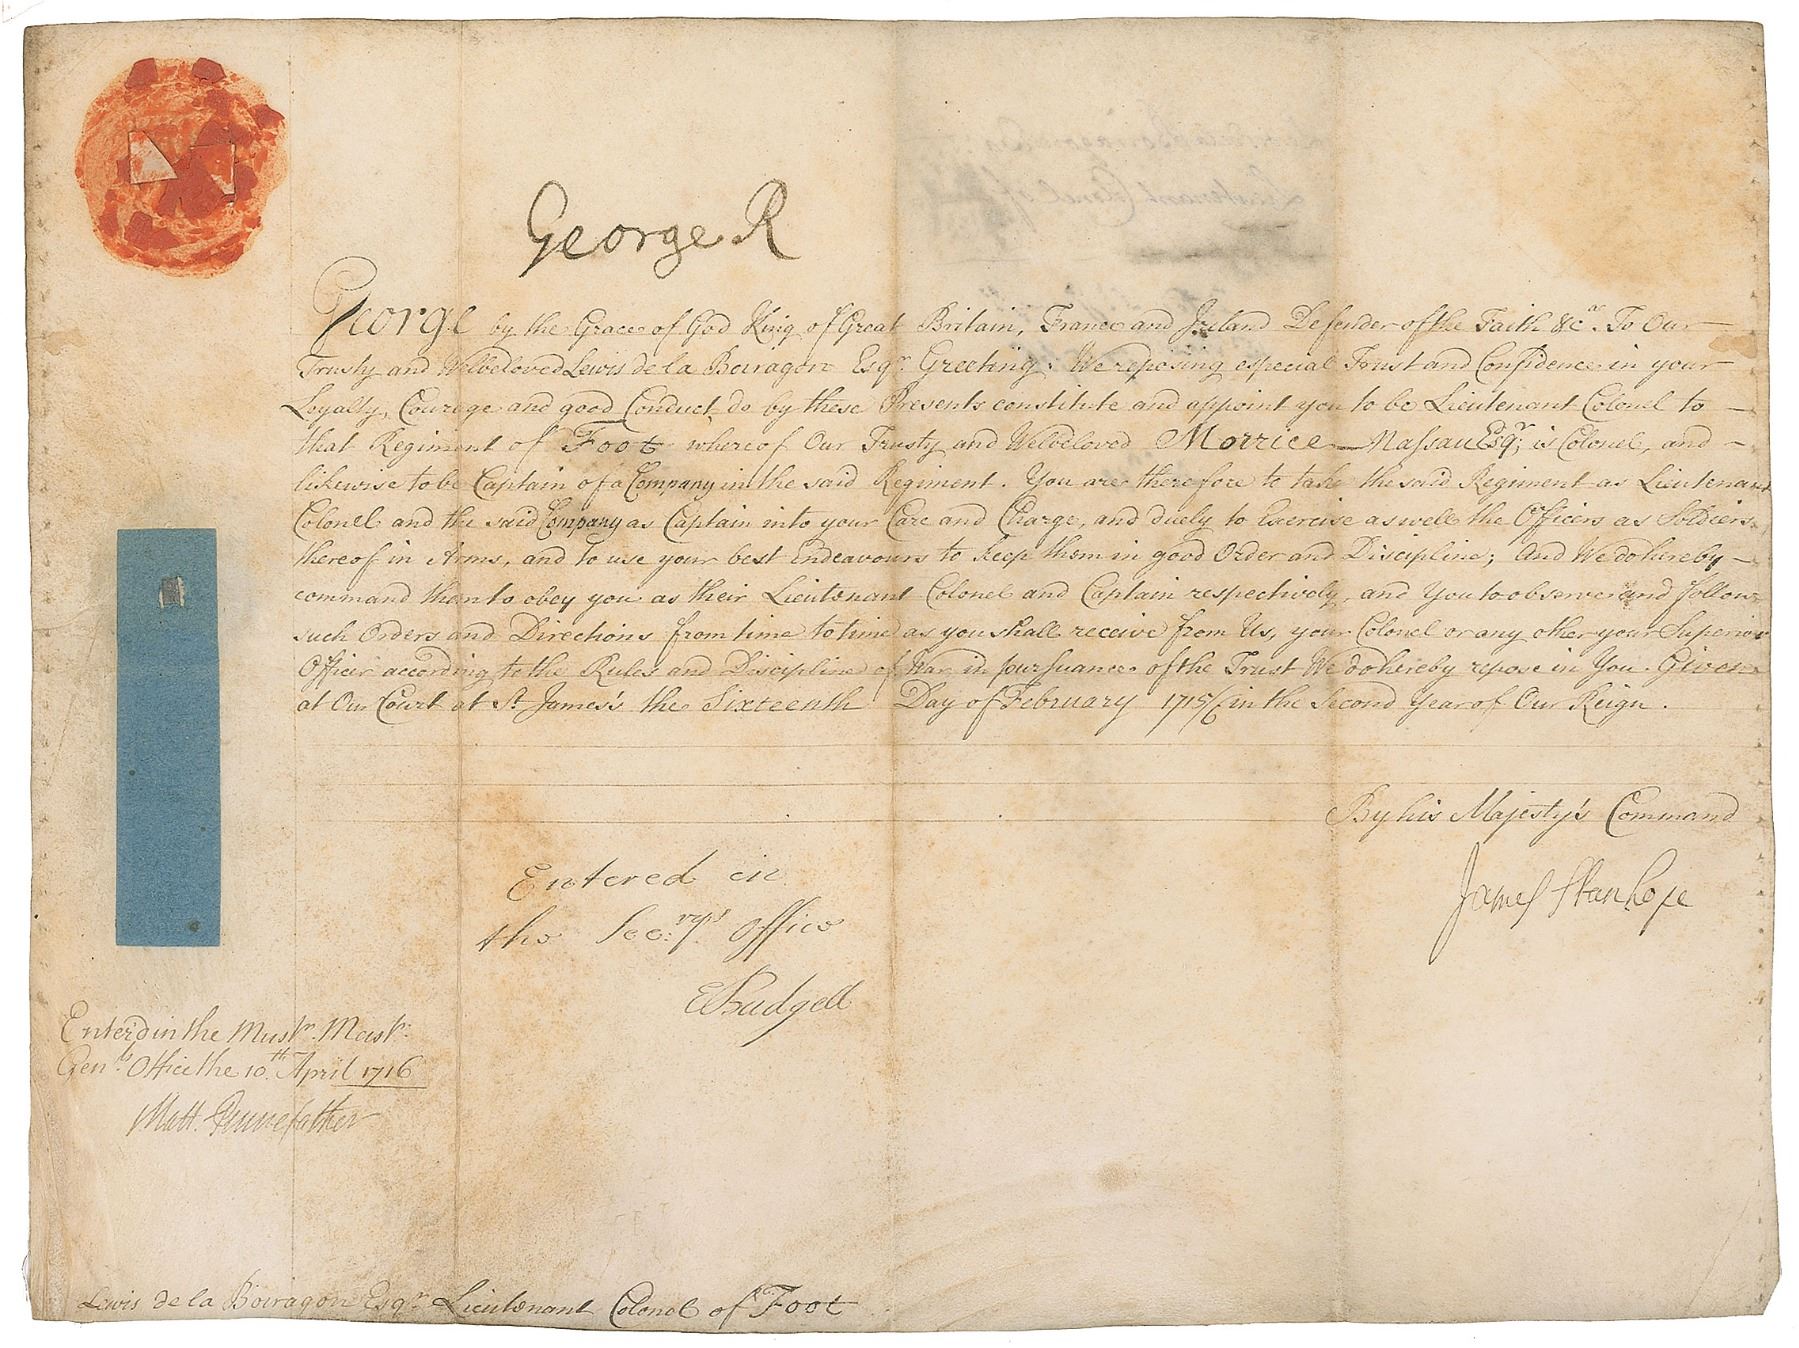 George R
George by the Grace of God King of Great Britain, France and Ireland Defender of the Faith &c.a To Our
Trusty and Welbeloved Lewis de la Boiragon Esqr. Greeting. We reposing especial Trust and Confidence in your
Loyalty, Courage and good Conduct do by these Presents constitute and appoint you to be Lieutenant Colonel to
that Regiment of Foot whereof Our Trusty and Welbeloved Morrice Nassau Esqr; is Colonel, and
likewise to be Captain of a Company in the said Regiment. You are therefore to take the said Regiment as Lieutenant
Colonel and the said Company as Captain into your Care and Charge, and duely to Exercise as well the Officers as Soldiers
thereof in Arms, and to use your best Endeavours to keep them in good Order and Discipline; And We do hereby
command them to obey you as their Lieutenant Colonel and Captain respectively, and You to observe and follow
such Orders and Directions from time to time as you shall receive from Us, your Colonel or any other your Superior
Officer according to the Rules and Discipline of War in pursuance of the Trust We do hereby repose in You. Given
at Our Court at St. James's the Sixteenth Day of February 1715/6 in the Second Year of Our Reign.
By his Majesty's Command
James Stanhope
Entered in
the Secrys. Office
EBudgell
Enter'd in the Mustr. Mastr.
Genls. Office the 10th. April 1716
Matt. Pennefather
Lewis de la Boiragon Esqr. Lieutenant Colonel of Foot